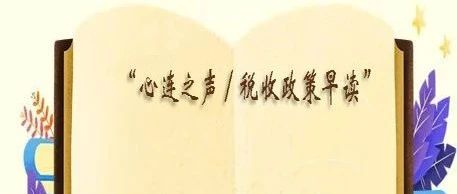 “心连之声/税收政策早读”